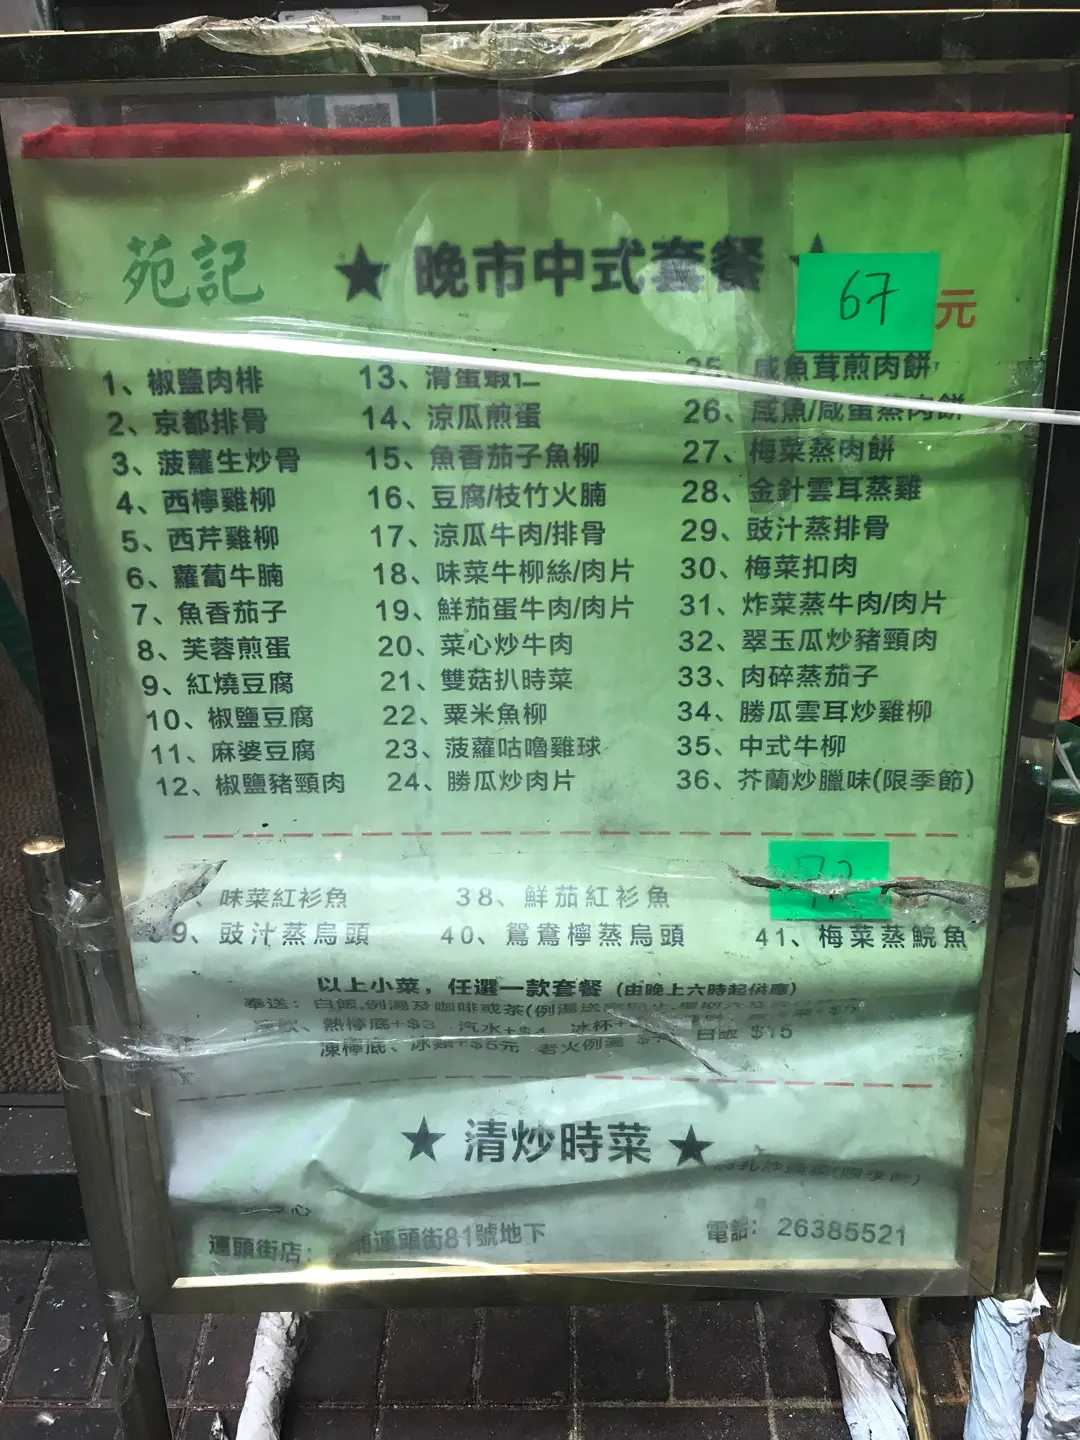 苑記 ★ 晚市中式套餐 67 元
1、椒鹽肉排 13、滑蛋蝦仁 25、咸魚茸煎肉餅
2、京都排骨 14、涼瓜煎蛋 26、咸魚/咸蛋蒸肉餅
3、菠蘿生炒骨 15、魚香茄子魚柳 27、梅菜蒸肉餅
4、西檸雞柳 16、豆腐/枝竹火腩 28、金針雲耳蒸雞
5、西芹雞柳 17、涼瓜牛肉/排骨 29、豉汁蒸排骨
6、蘿蔔牛腩 18、味菜牛柳絲/肉片 30、梅菜扣肉
7、魚香茄子 19、鮮茄蛋牛肉/肉片 31、炸菜蒸牛肉/肉片
8、芙蓉煎蛋 20、菜心炒牛肉 32、翠玉瓜炒豬頸肉
9、紅燒豆腐 21、雙菇扒時菜 33、肉碎蒸茄子
10、椒鹽豆腐 22、粟米魚柳 34、勝瓜雲耳炒雞柳
11、麻婆豆腐 23、菠蘿咕嚕雞球 35、中式牛柳
12、椒鹽豬頸肉 24、勝瓜炒肉片 36、芥蘭炒臘味(限季節)
72
、味菜紅衫魚 38、鮮茄紅衫魚
39、豉汁蒸烏頭 40、鴛鴦檸蒸烏頭 41、梅菜蒸鯇魚
以上小菜，任選一款套餐 (由晚上六時起供應)
奉送：白飯,例湯及咖啡或茶(例湯送完即止,星期六及
熱檸底+$3 汽水+$4 冰杯+ 白飯 $15
凍檸底、冰類+$5元 老火例湯
★ 清炒時菜 ★
運頭街店： 運頭街81號地下 電話: 26385521